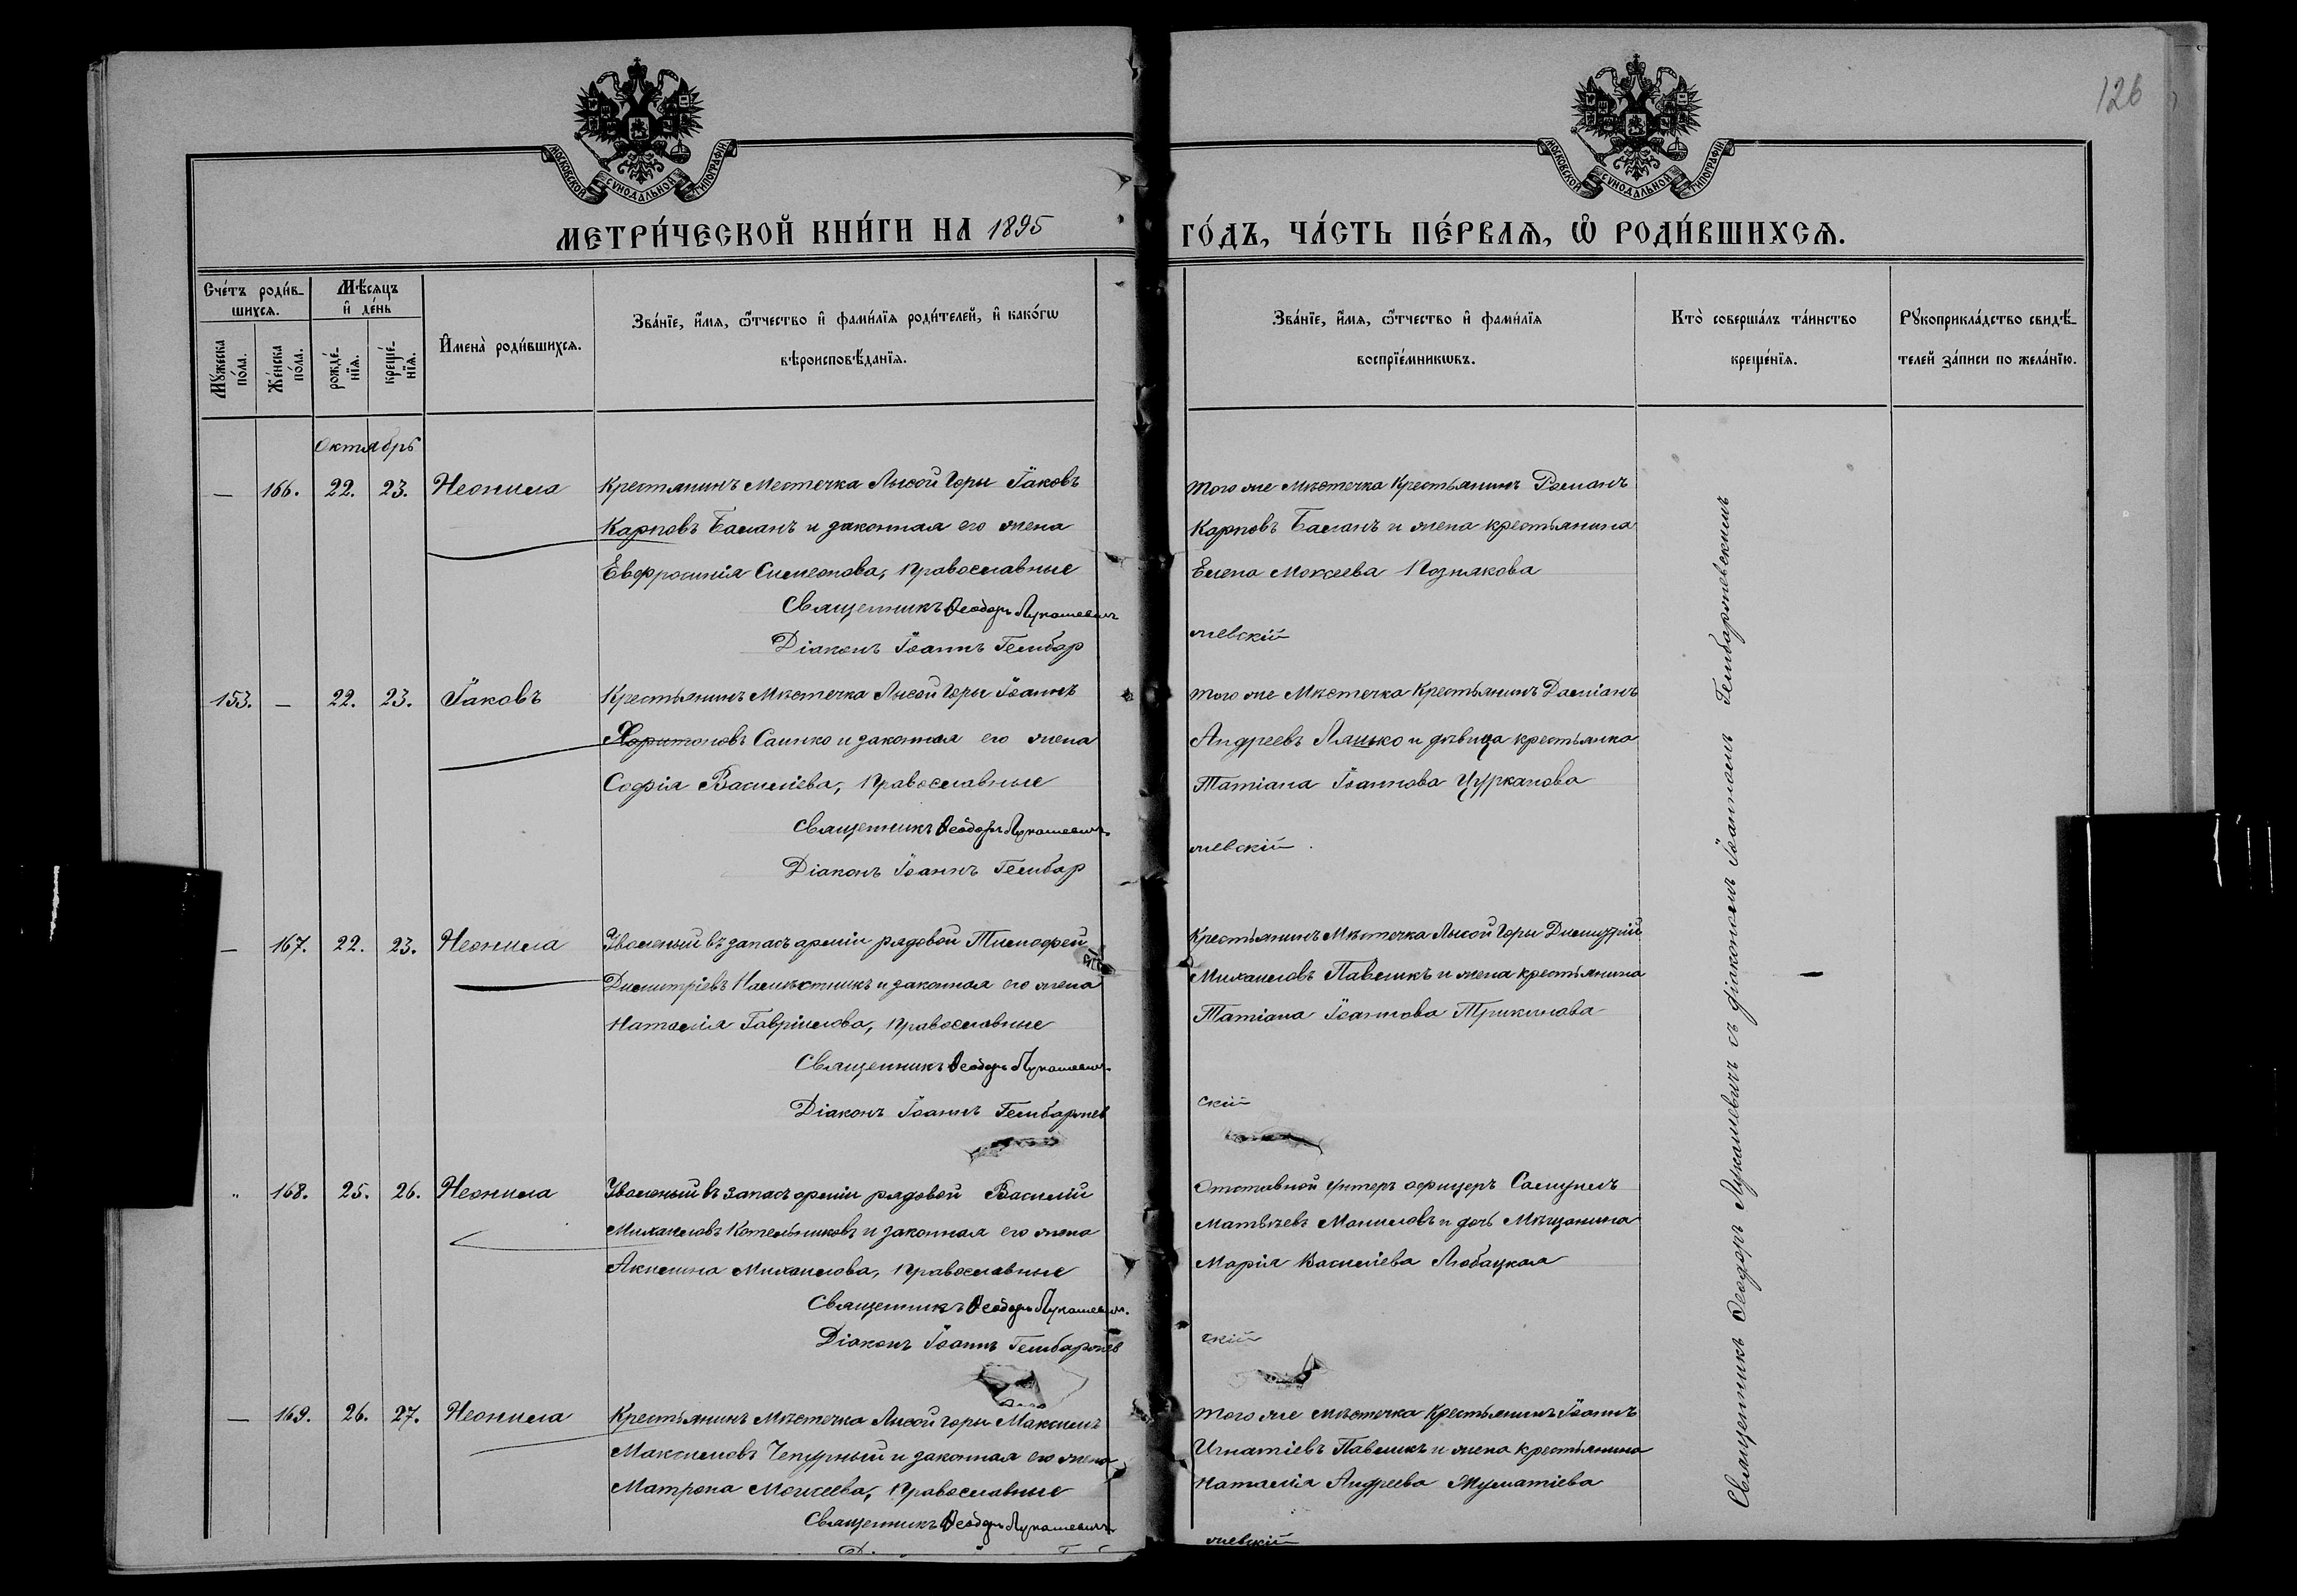 126
МОСКОВСКОЙ СѴНОДАЛЬНОЙ ТИПОГРАФІИ
МОСКОВСКОЙ СѴНОДАЛЬНОЙ ТИПОГРАФІИ
МЕТРИ́ЧЕСКОЙ КНИ́ГИ НА 1895 ГО́ДЪ, ЧА́СТЬ ПЕ́РВАѦ, Ѡ҆ РОДИ́ВШИХСѦ.
Сче́тъ роди́в-
шихсѧ.
Мꙋ́жеска по́ла.
Же́нска по́ла.
Мѣ́сѧцъ
и҆ де́нь
рожде́-
нїѧ.
креще́-
нїѧ.
И҆мена̀ роди́вшихсѧ.
Зва́нїе, и҆́мѧ, ѻ҆́тчество и҆ фами́лїѧ роди́телей, и҆ како́гѡ
вѣроисповѣ́данїѧ.
Зва́нїе, и҆́мѧ, ѻ҆́тчество и҆ фами́лїѧ
воспрїе́мникѡвъ.
Кто̀ соверша́лъ та́инство
креще́нїѧ.
Рꙋкоприкла́дство свидѣ́-
телей за́писи по жела́нїю.
Октябрь
— 166. 22. 23. Неонила
Крестянинъ Местечка Лысой Горы Іаковъ
Карповъ Баланъ и законная его жена
Евфросинія Симеонова, православные
Священникъ Ѳеодоръ Лукашевичъ
Діаконъ Іоаннъ Гембар
того же мѣстечка Крестьянинъ Романъ
Карповъ Баланъ и жена крестьянина
Елена Моксеева Познякова
жевскій
153. — 22. 23. Іаковъ
Крестьянинъ Мѣстечка Лысой Горы Іоаннъ
Харитоновъ Саинко и законная его жена
Софія Василіева, православные
Священникъ Ѳеодоръ Лукашевичъ
Діаконъ Іоаннъ Гембар
того же Мѣстечка Крестьянинъ Даміанъ
Андреевъ Ляшко и дѣвица крестьянка
Татіана Іоаннова Цурканова
жевскій
— 167. 22. 23. Неонила
Уволеный въ запасъ арміи рядовой Тимофей
Димитріевъ Намѣстникъ и законная его жена
Наталія Гавріилова, православные
Священникъ Ѳеодоръ Лукашевичъ
Діаконъ Іоаннъ Гембаржев
Крестьянинъ Мѣстечка Лысой Горы Димитрій
Михаиловъ Павликъ и жена крестьянина
Татіана Іоаннова Трикинова
скій
„ 168. 25. 26. Неонила
Уволеный въ запасъ арміи рядовой Василій
Михаиловъ Котельниковъ и законная его жена
Акилина Михаилова, православные
Священникъ Ѳеодоръ Лукашевичъ.
Діаконъ Іоаннъ Гембаржев
Отставной унтеръ офицеръ Самуилъ
Матѳѣевъ Маниловъ и дочь Мѣщанина
Марія Василіева Любацкая
скій
— 169. 26. 27. Неонила
Крестьянинъ Мѣстечка Лысой горы Максимъ
Максимовъ Чепурный и законная его жена
Матрона Моисеева, православные
Священникъ Ѳеодоръ Лукашевичъ
того же мѣстечка Крестьянинъ Іоаннъ
Игнатіевъ Павликъ и жена крестьянина
Наталія Андреева Мулатіева
жевскій
Священникъ Ѳеодоръ Лукашевичъ съ діакономъ Іоанномъ Гембаржевскимъ